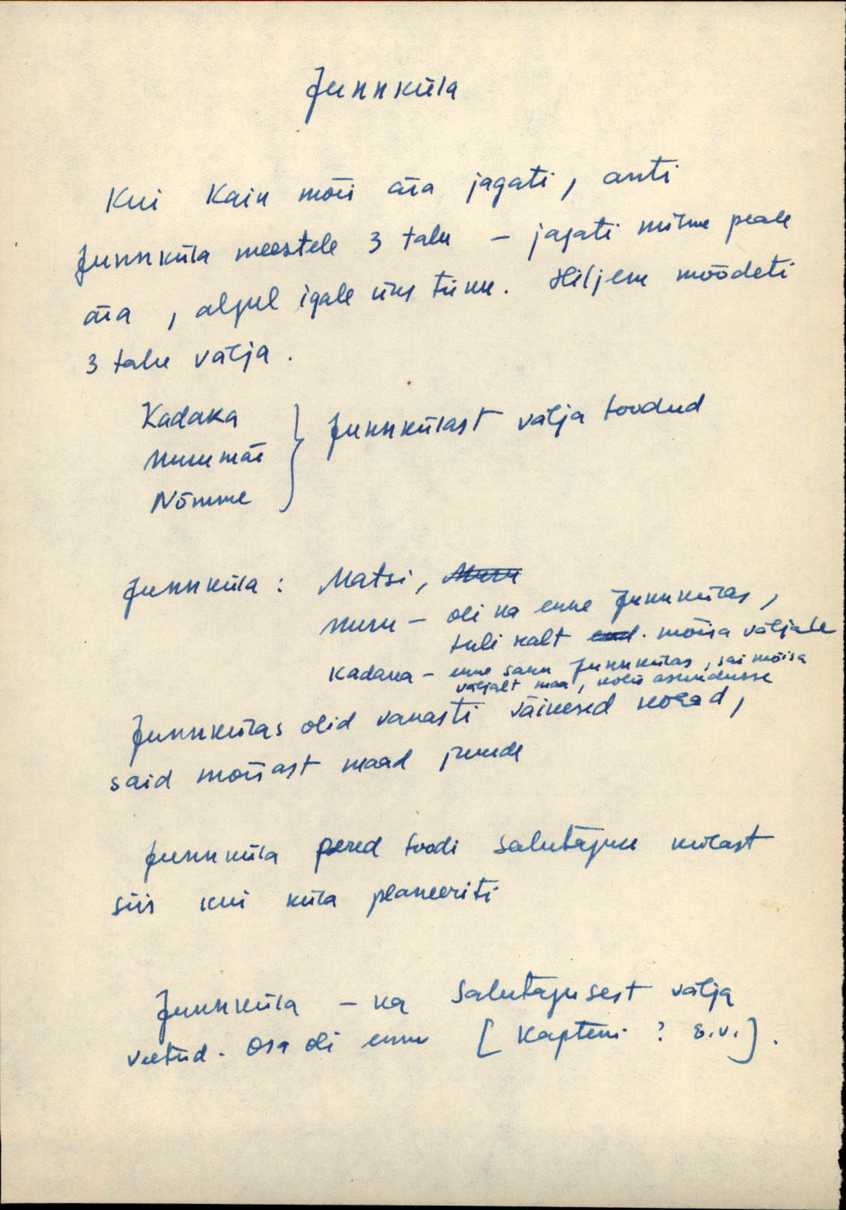 Junnküla
Kui Kain mõis ära jagati, anti
Junnküla meestele 3 talu – jagati mitme peale
ära, algul igale üks tiinu. Hiljem mõõdeti
3 talu välja.
Kadaka
Nurumäe
Nõmme
} Junnkülast välja toodud
Junnküla: Matsi, Nuru
Nuru – oli ka enne Junnkülas,
tuli sealt mõisa väljale
Kadaka – enne Junnkülas, sai mõisa
väljalt maa, kolis asundusse
Junnkülas olid vanasti väikesed kohad,
said mõisast maad juurde
Junnküla pered toodi Salutaguse külast
siis kui küla planeeriti
Junnküla – ka Salutagusest välja
veetud. Osa oli enne [Kapteni? s.v.].